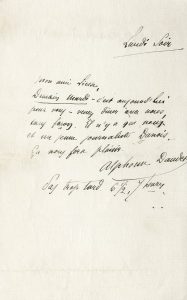 Lundi Soir
Mon ami,
Demain mardi - c'est aujourd'hui
pour vous - venez dîner avec nous,
Il n'y a que nous,
et un jeune journaliste Danois.
Ça nous fera plaisir
Alphonse Daudet
Pas trop tard 6h ½, 7 heures